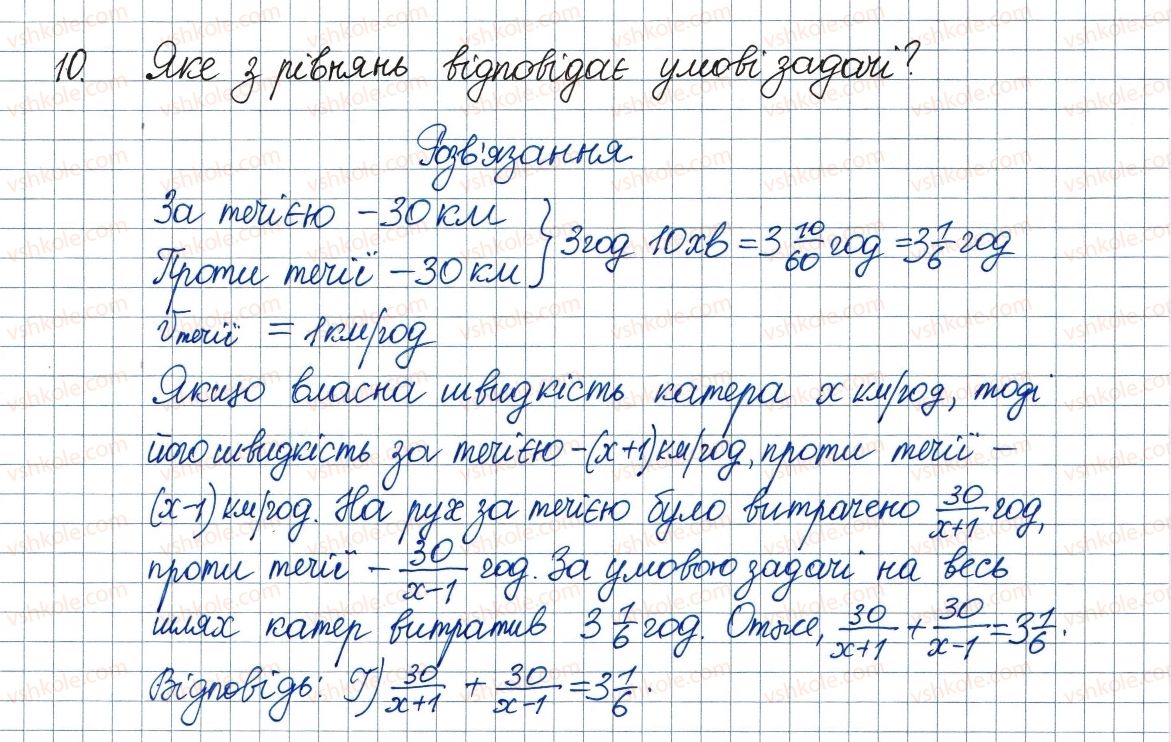 10. Яке з рівнянь відповідає умові задачі?
Розв'язання
За течією – 30 км
Проти течії – 30 км } 3 год 10 хв = 3 10/60 год = 3 1/6 год
Vтечії = 1 км/год
Якщо власна швидкість катера x км/год, тоді
його швидкість за течією – (x+1) км/год, проти течії –
(x-1) км/год. На рух за течією було витрачено 30/(x+1) год,
проти течії – 30/(x-1) год. За умовою задачі на весь
шлях катер витратив 3 1/6 год. Отже, 30/(x+1) + 30/(x-1) = 3 1/6.
Відповідь: Г) 30/(x+1) + 30/(x-1) = 3 1/6.
vshkole.com